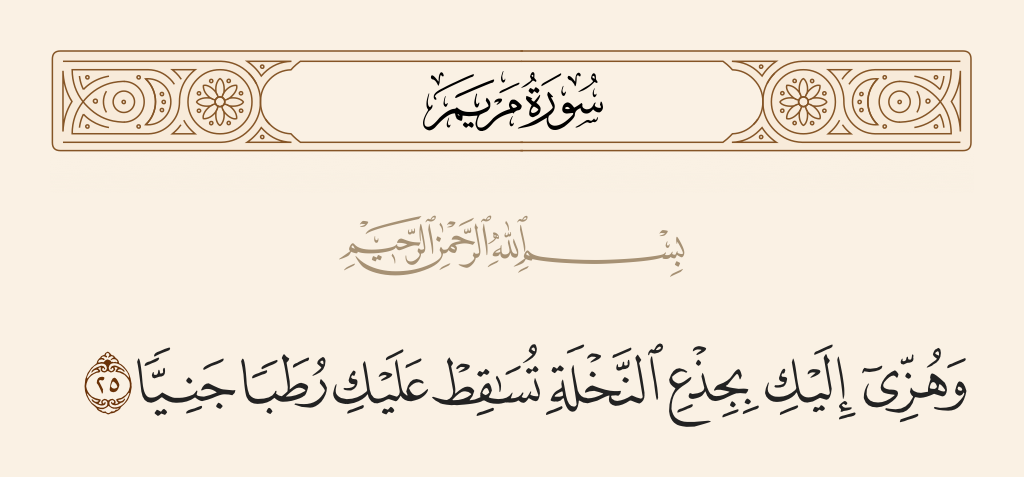 سُورَةُ مَرْيَمَ
بِسْمِ ٱللَّهِ ٱلرَّحْمَٰنِ ٱلرَّحِيمِ
وَهُزِّىٓ إِلَيْكِ بِجِذْعِ ٱلنَّخْلَةِ تُسَٰقِطْ عَلَيْكِ رُطَبًا جَنِيًّا ٢٥